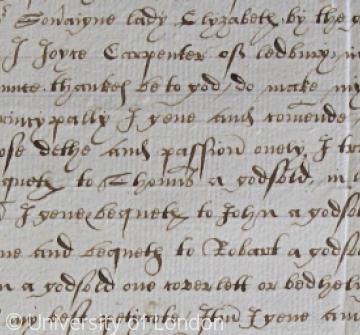 Soveraigne lady Elyzabeth by the g
I Joyce Carpenter of ledbury in
thankes be to god, do make my
pryncypally I geve and comende
ose dethe and passion onely I tr
queth to Thomas a godsold, in
I geve & bequeth to John a godso
ve and bequeth to Robart a godso
n a godsold one coverlett or bedheli
best petycote. Itm I geve and
© University of London